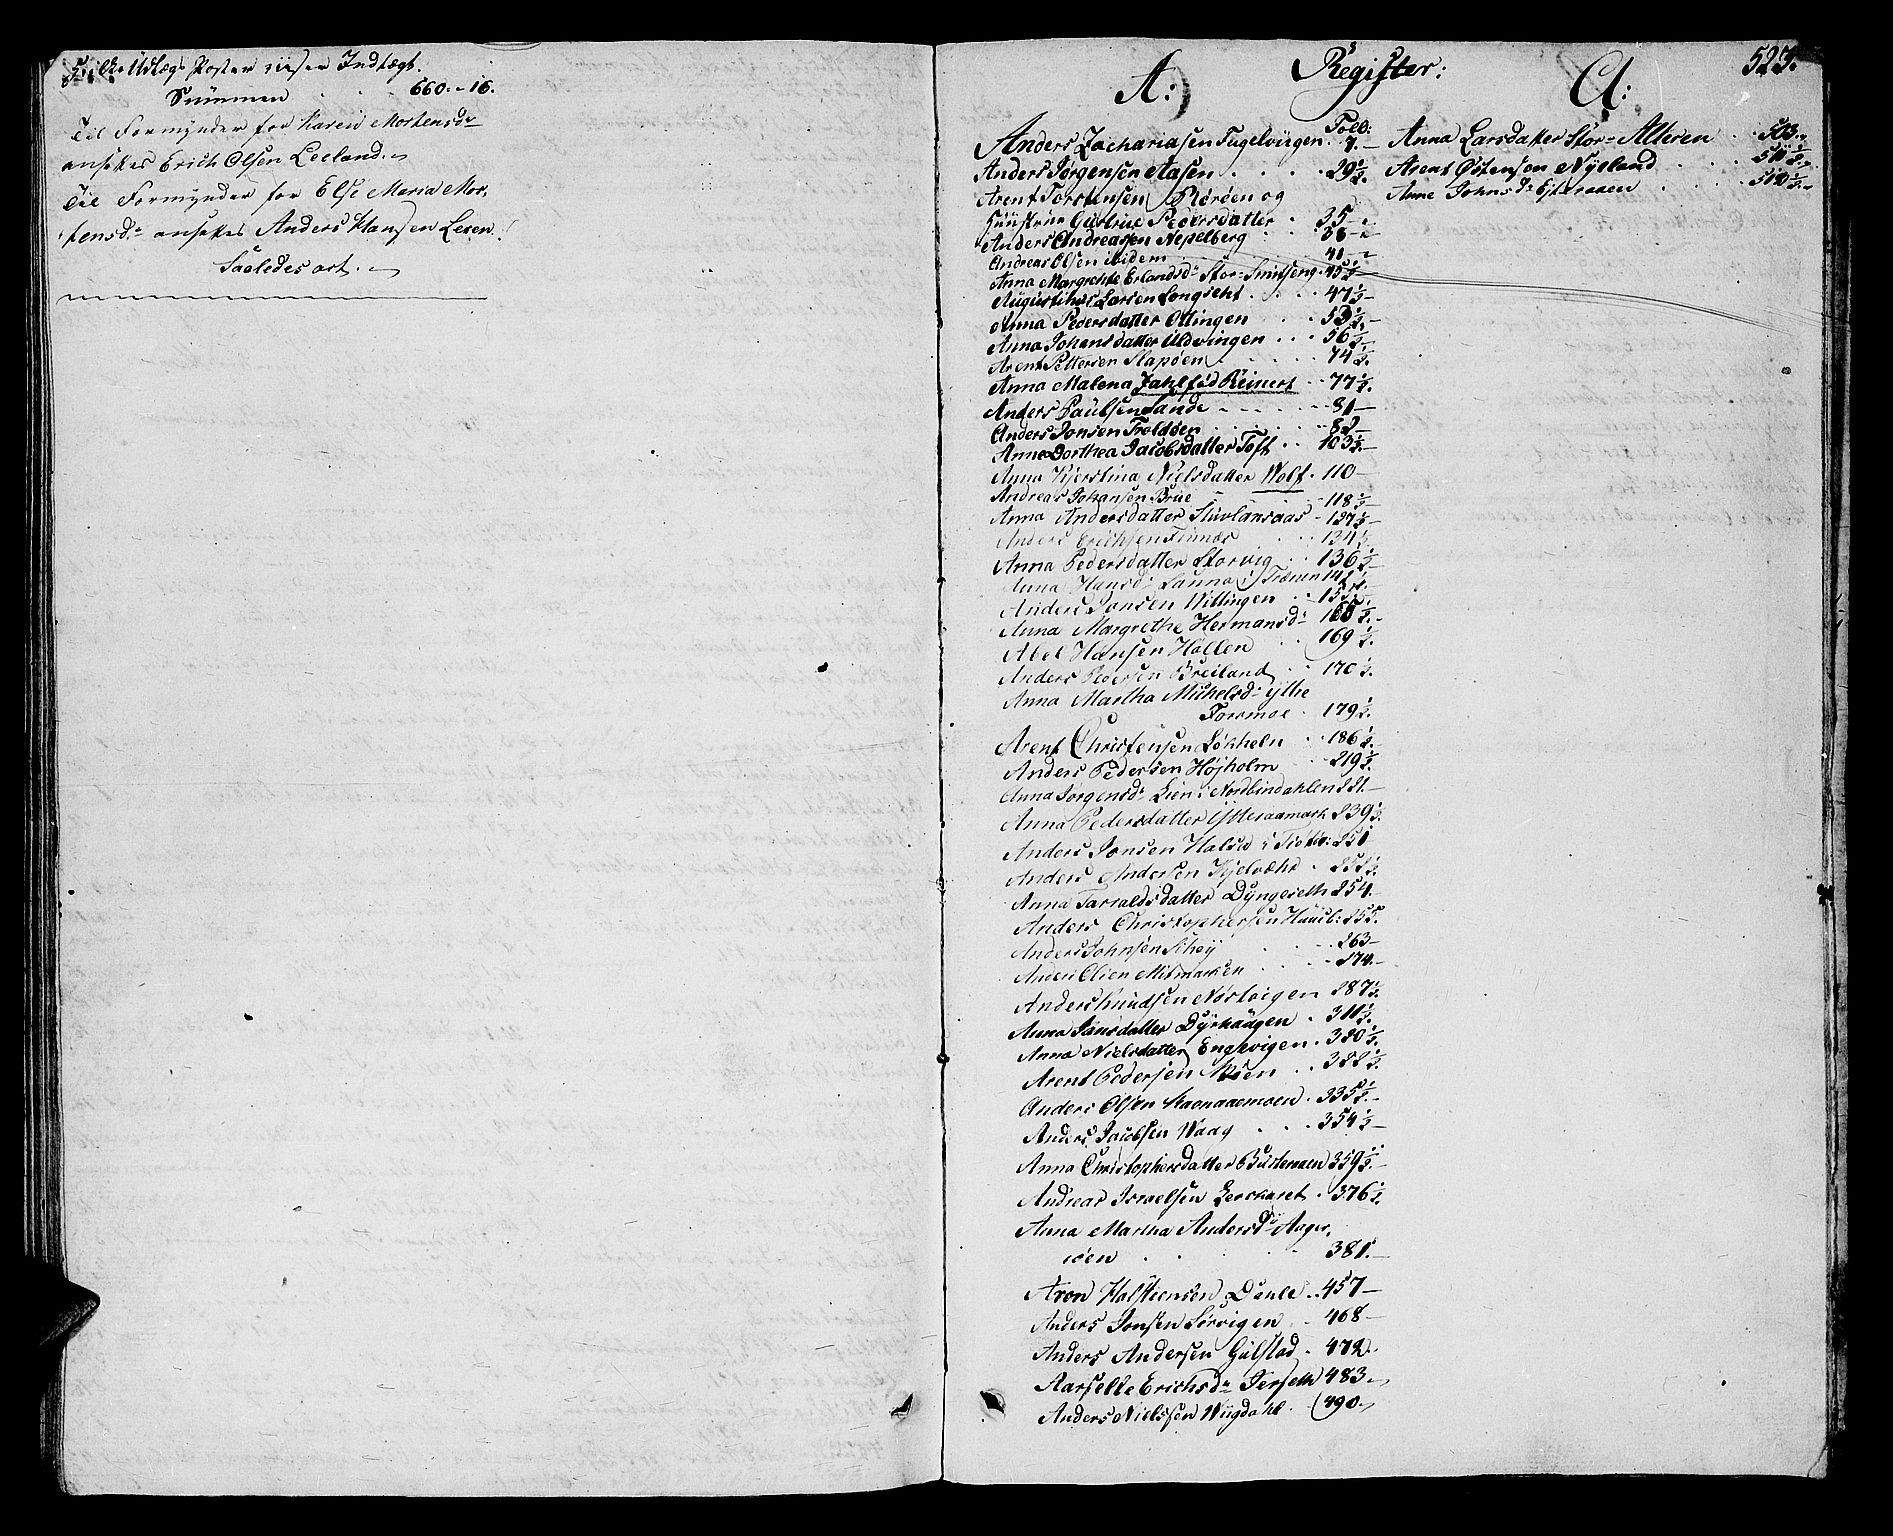 Udlægs Poster viser Indtægt.
Summen 660.-16.
Til Formynder for Karen Mortensdr
ansettes Erich Olsen Leeland.
Til Formynder for Else Maria Mor,
tensdr ansettes Anders Hansen Leren.
Saaledes art.
523.
Register:
A:
A:
Fol:
Anders Zachariasen Fugelviigen. 7.
Anders Jørgensen Aasen . . . . 29½.
Arent Torstensen Rørøen og
Huustrue Giertrue Pedersdatter . 35
Anders Andreassen Nepelberg . . 36
Andreas Olsen ibidem 41
Anna Margrethe Erlandsdr Stor-Smitseng. 45½
Augustinus Larsen Longseht . . . 47½
Anna Pedersdatter Ottingen . . 53½
Anna Johansdatter Uldvingen . . . 56½
Arent Pettersen Slapøen . . . 74½.
Anna Malena Zahlfed Reinert . . 77½.
Anders Paulsen Sande . . . 81
Anders Jonsen Troldøen . . . 82
Anna Dorthea Jacobsdatter Toft . . 103½
Anna Kierstina Nielsdatter Wolf . 110
Andreas Johansen Brue . . 118½
Anna Andersdatter Stuvlansaas . 127½
Anders Erichsen Finnæs . . 134½
Anna Pedersdatter Storvig . . 136½
Anna Hansdr Sauna i Trænen 141½
Anders Jonsen Wittingen . . 155½
Anna Margrethe Hermansdr 165½.
Abel Hansen Hallen . . 169½.
Anders Pedersen Breiland . . 170½
Anna Martha Michelsdr yttre
Formoe . 179½.
Arent Christensen Løkheln . . 186½.
Anders Pedersen Højholm . . 219½.
Anna Jørgensdr Lien i Nordbindahlen 221.
Anna Pedersdatter Ytteraamark 239½.
Anders Jonsen Halsed i 251
Anders Andersen Kjelvæhr . 252½.
Anna Tarraldsdatter Dyngeseth 254.
Anders Christophersen 255.
Anders Johnsen Schey . . . 263
Anders Olsen Mitmarken . . . 274.
Anders Knudsen Nørtvigen 287½.
Anna Jansdatter Dyrhaugen . 311½.
Anna Nielsdatter Engevigen . 320½.
Arent Pedersen Moen . . 322½.
Anders Olsen Kaonaaemoen . 335½.
Anders Jacobsen Waag . . . 354½
Anna Christophersdatter Bustemoen 359½.
Andreas Israelsen Leerkaret . 376½.
Anna Martha Andersdr Anger,
søen . . . 381.
Aron Halsteensen Dahle . . 457
Anders Jonsen Sørvigen . 468
Anders Andersen Gulstad . 472.
Aarselle Erichsdr Ferseth 483.
Anders Nielssen Wiigdahl . 490.
Anna Larsdatter Stor-Alteren . . 503.
Arent Østensen Nyeland . . . 511½.
Anne Johnsdr . . . 520½.